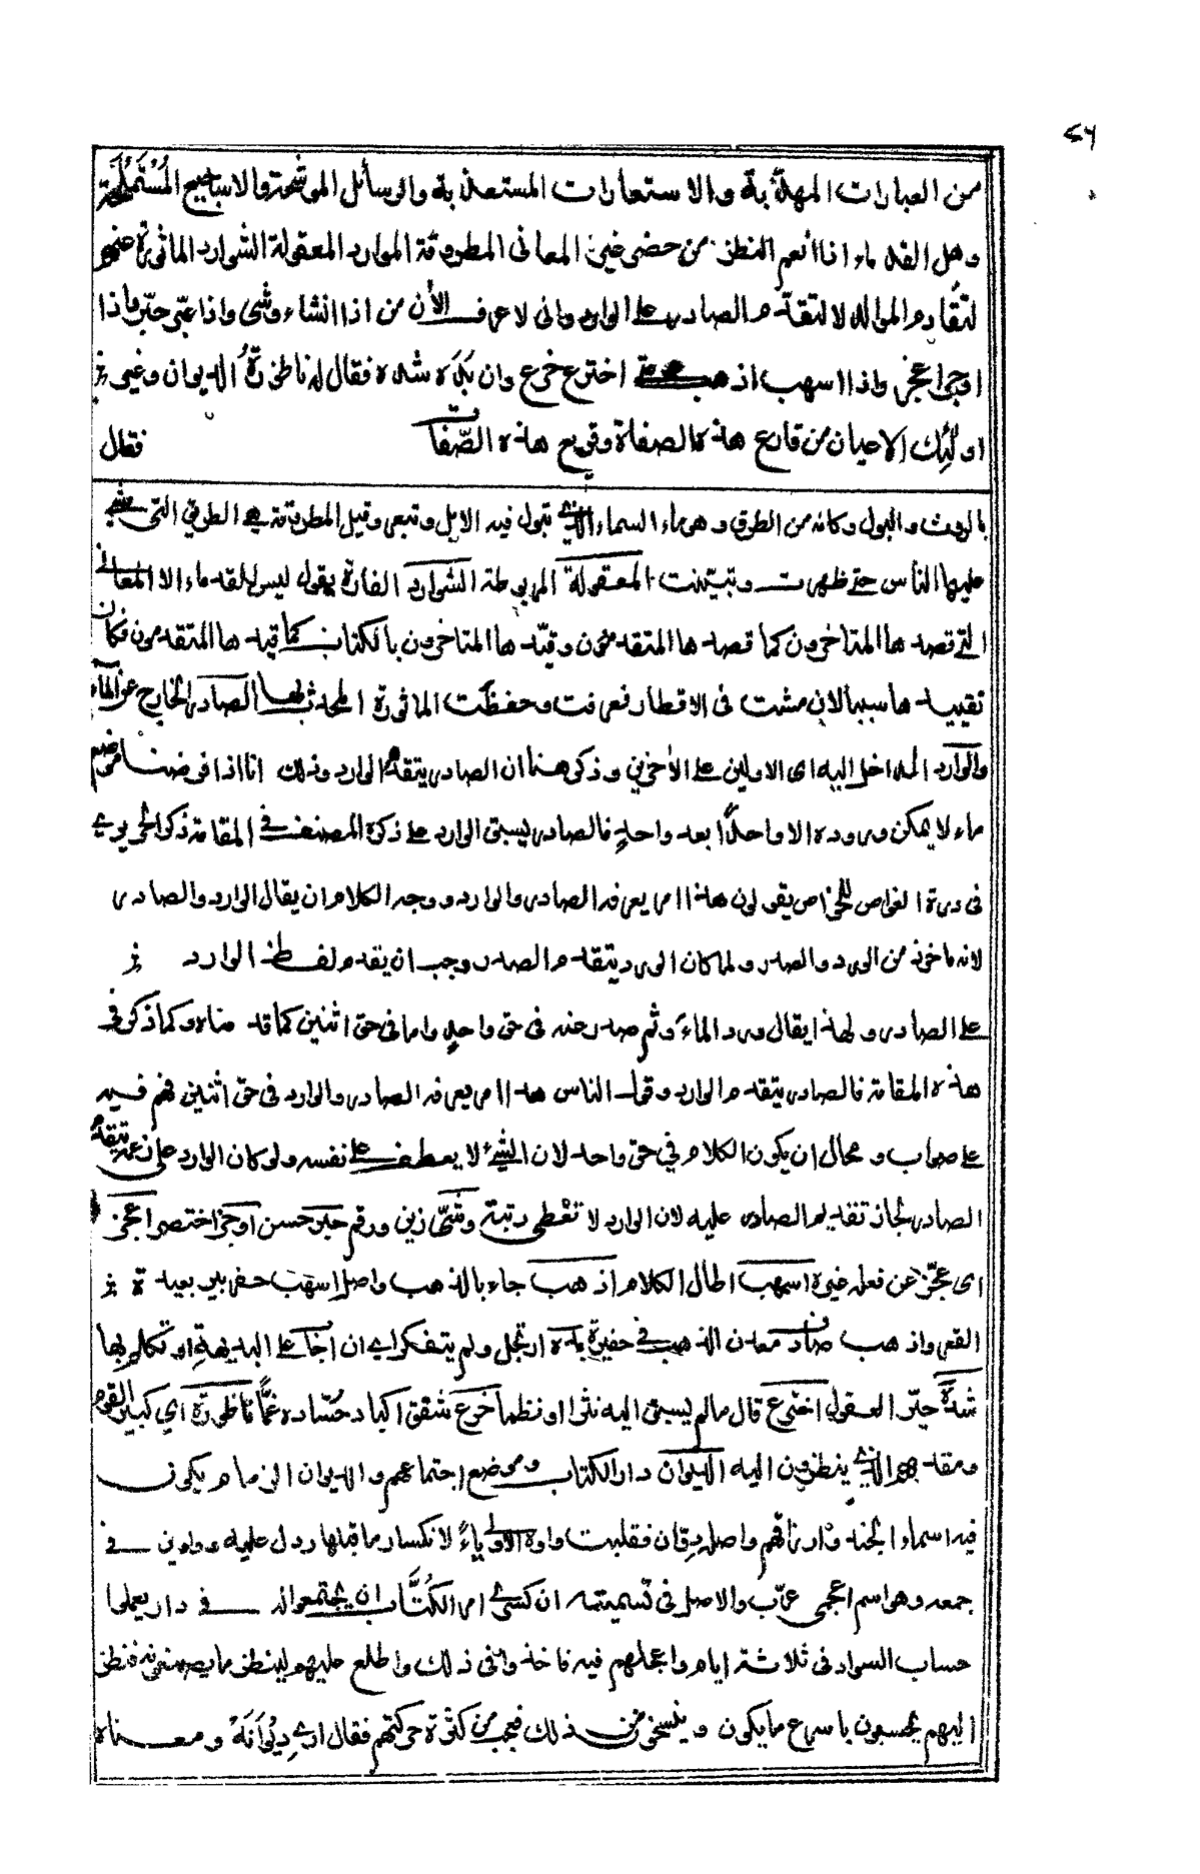 ٤٦
من العبارات المهذّبة والاستعارات المستعذبة والرسائل الموشّحة والاساجيع المُسْتَمْلَحَة
وهل للقدماء اذا أنعم النظر من حضر غير المعانى المطروقة الموارد المعقولة الشوارد الماثورة عنهم
لتقادم الموالد لا لتقدّم الصادر على الوارد وانى لاعرف الأن من اذا انشاء وشى واذا عبّر حبّر واذا
اوجز اعجز واذا اسهب اذهب اخترع خرع وان بَدَه شده فقال له ناظورةُ الديوان وعين
اولئك الاعيان من قارع هذه الصفاة وقريع هذه الصّفات فقال
بالروث والبول وكانه من الطرق وهو ماء السماء الذي تبول فيه الابل وتبعر وقيل المطروقة هي الطرق التى مشى
عليها الناس حتے ظهرت وتبيّنت المعقولة المربوطة الشوارد الفارّة يقول ليس للقدماء الا المعانى
التے قصدها المتاخرون كما قصدها المتقدمون وقيّدها المتاخرون بالكتاب كما قيدها المتقدمون فكان
تقييدها سببا لان مشت فى الاقطار فعرفت وحفظت الماثورة المحدث بها الصادر الخارج عن الماء
والوارد الداخل اليه اى الاولين على الأخرين وذكر هنا ان الصادر يتقدم الوارد وذلك انا اذا فرضنا موضع
ماء لا يمكن وروده الا واحدًا بعد واحدٍ فالصادر يسبق الوارد على ذكره المصنف فى المقامة ذكر الحريرے
فى درة الغواص للخواص يقولون هذا امر يعرفه الصادر والوارد ووجه الكلام ان يقال الوارد والصادر
لانه ماخوذ من الورد والصدر ولما كان الورد يتقدم الصدر وجب ان يقدم لفظ الوارد
على الصادر ولهذا يقال ورد الماءَ وثم صدر عنه فى حق واحدٍ واما فى حق اثنين كما قدمناه وكما ذكر فى
هذه المقامة فالصادر يتقدم الوارد وقول الناس هذا امر يعرفه الصادر والوارد فى حق اثنين فهم فيه
على صواب ومحال ان يكون الكلام في حق واحد لان الشئ لا يعطف على نفسه ولو كان الوارد على زعمه يتقدم
الصادر لجاز تقديم الصادر عليه لان الوارد لا تعطى رتبة وشّى زين ورقم حبّر حسن اوجز اختصر اعجز
اى عجّز عن فعله غيره اسهب اطال الكلام اذهب جاء بالذهب واصل اسهب حفر بير بعيدة
القعر واذهب صادف معدن الذهب فى حفيرة بده ارتجل ولم يتفكر اى ان اجاء على البديهة او تكلم بها
شده حيّر العقول اخترع قال مالم يسبق اليه نثرا او نظما خرع شقق اكباد حسّاده غمًّا ناظورة اي كبير القوم
ومقدمهم الذي ينظرون اليه الديوان دار الكتاب وموضع اجتماعهم والديوان الزمام يكون
فيه اسماء الجند وارزاقهم واصله دِوّان فقلبت واوه الاولى ياءً لانكسار ما قبلها ودل عليه دواوين فى
جمعه وهو اسم اعجمى عرّب والاصل فى تسميته ان كسرى امر الكُتَّاب ان يجتمعوا له فى دار يعملوا
حساب السواد فى ثلاثة ايام واعجلهم فيه فاخذوا فى ذلك واطلع عليهم لينظر ما يصنعونه فنظر
اليهم يحسبون باسرع ما يكون وينسخون من ذلك فعجب من كثرة حركتهم فقال ارى دِيْوَانَهْ ومعناه